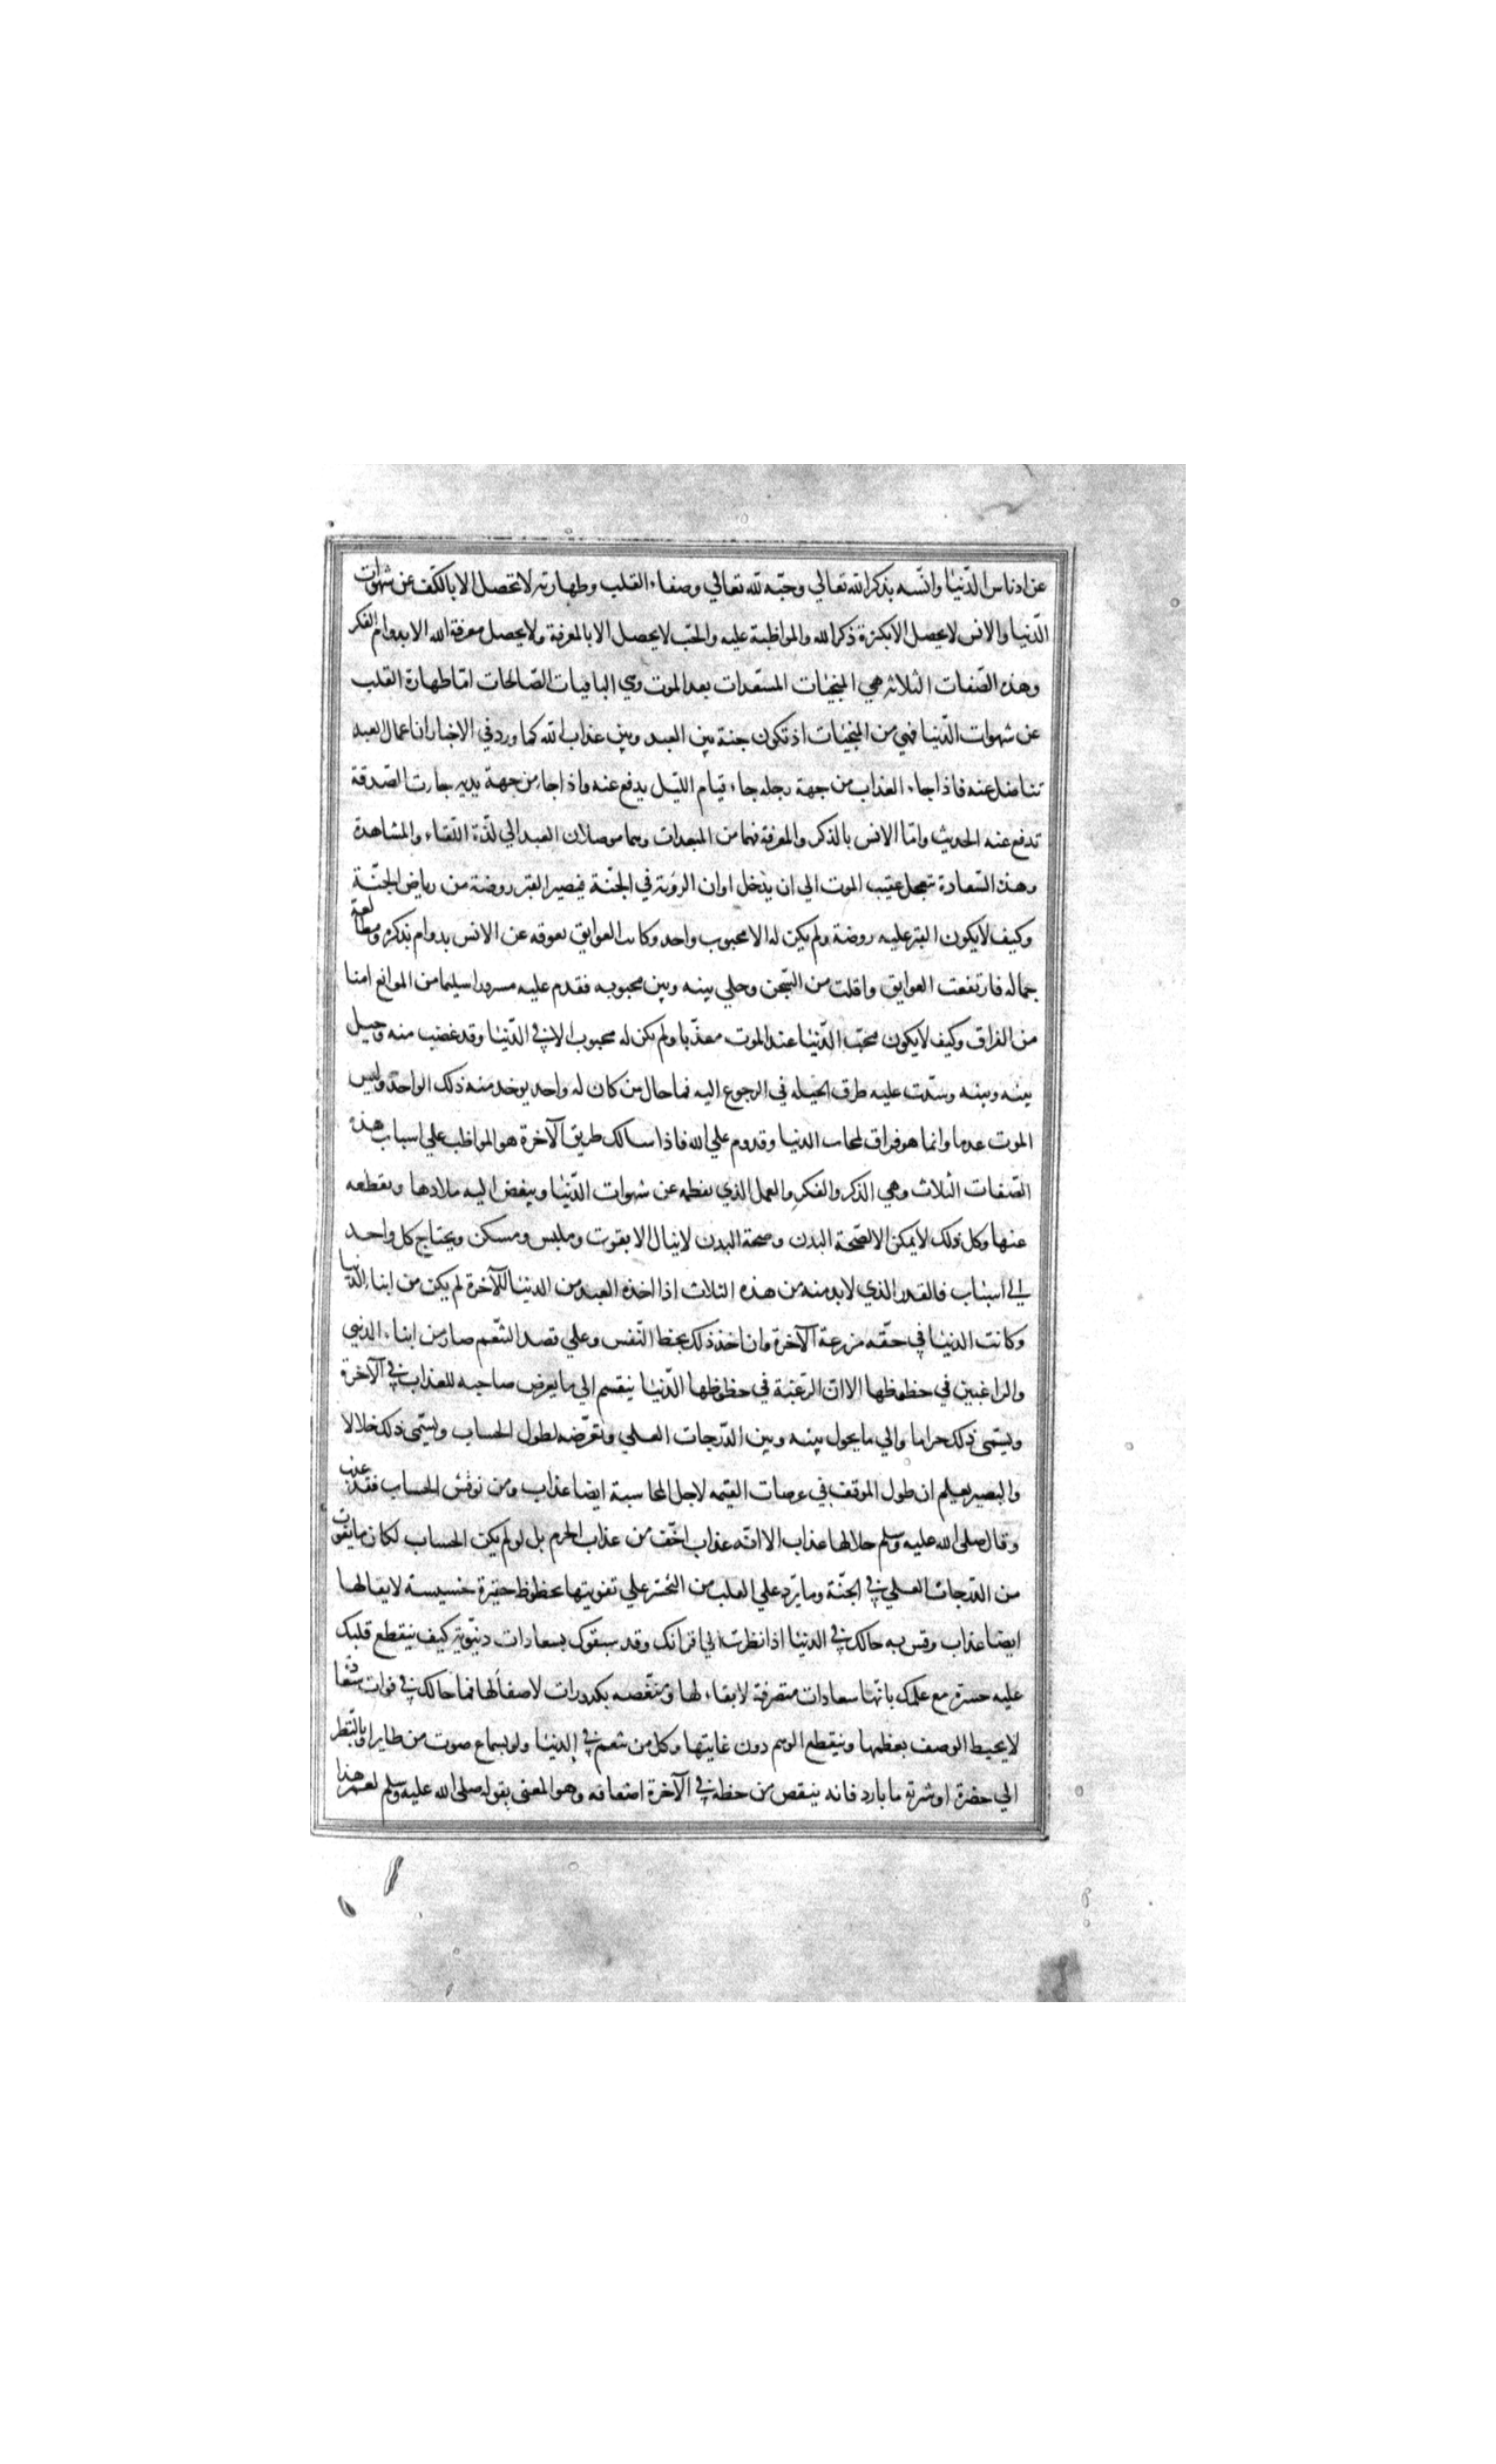 عن ادناس الدّنيا وانسه بذكر الله تعالي وحبّه لله تعالي وصفاء القلب وطهارته لا تحصل الا بالكف عن شهوات
الدّنيا والانس لا يحصل الا بكثرة ذكر الله والمواظبة عليه والحب لا يحصل الا بالمعرفة ولا يحصل معرفة الله الا بدوام الفكر
وهذه الصّفات الثلاثه هي المنجيات المسعدات بعد الموت وهي الباقيات الصّالحات امّا طهارة القلب
عن شهوات الدّنيا فهي من المنجيات اذ تكون جنة بين العبد وبين عذاب الله كما ورد في الاخبار ان اعمال العبد
تناضل عنه فاذا جاء العذاب من جهة رجله جاء قيام الليل يدفع عنه واذا جاء من جهة يديه جاءت الصّدقة
تدفع عنه الحديث وامّا الانس بالذكر والمعرفة فهما من المسعدات وهما موصلان العبد الي لذّة اللقاء والمشاهدة
وهذه السّعادة تتعجل عقيب الموت الي ان يدخل اوان الرؤية في الجنّة فيصير القبر روضة من رياض الجنّة
وكيف لا يكون القبر عليه روضة ولم يكن له الا محبوب واحد وكانت العوايق تعوقه عن الانس بدوام ذكره ومطالعة
جماله فارتفعت العوايق وافلت من السّجن وخلي بينه وبين محبوبه فقدم عليه مسرورا سليما من الموانع امنا
من الفراق وكيف لا يكون محب الدّنيا عند الموت معذّبا ولم يكن له محبوب الا في الدّنيا وقد غصب منه وحيل
بينه وبينه وسدّت عليه طرق الحيله في الرجوع اليه فما حال من كان له واحد يوخد منه ذلك الواحد وليس
الموت عدما وانما هو فراق لمحاب الدنيا وقدوم علي الله فاذا سالك طريق الآخرة هو المواظب علي اسباب هذه
الصّفات الثلاث وهي الذكر والفكر والعمل الذي يفطمه عن شهوات الدّنيا ويبغض اليه ملاذها ويقطعه
عنها وكل ذلك لا يمكن الا لصّحة البدن وصحة البدن لا ينال الا بقوت وملبس ومسكن ويحتاج كل واحد
الي اسباب فالقدر الذي لابد منه من هذه الثلاث اذا اخذه العبد من الدنيا للآخرة لم يكن من ابناء الدّنيا
وكانت الدنيا في حقّه مزرعة الآخرة وان اخذ ذلك بحظ النّفس وعلي قصد التنعّم صار من ابناء الدنيي
والراغبين في حظوظها الا ان الرّغبة في حظوظها الدّنيا ينقسم الي ما يعرض صاحبه للعذاب في الآخرة
ويسّمى ذلك حراما والي ما يحول بينه وبين الدّرجات العلي وتعرّضه لطول الحساب ويسّمى ذلك حلالا
والبصير يعلم ان طول الموقف في عرصات القيمه لاجل المحاسبة ايضا عذاب ومن نوقش الحساب فقد عذب
وقال صلى الله عليه وسلم حلالها عذاب الا انّه عذاب اخّف من عذاب الحرم بل لو لم يكن الحساب لكان ما يفوت
من الدّرجات العلي في الجنّة وما يرد علي القلب من التحسّر علي تفويتها بحظوظ حقيرة خسيسة لا بقا لها
ايضا عذاب وقس به حالك في الدنيا اذا نظرت الي اقرانك وقد سبقوك بسعادات دنيّوية كيف ينقطع قلبك
عليه حسرة مع علمك بانّها سعادات متصرفة لا بقاء لها ومنغّصه بكدورات لا صفآ لها فما حالك في فوات سعادة
لا يحيط الوصف بعظمها وينقطع الوهم دون غايتها وكل من تنعم في الدنيا ولو بسماع صوت من طاير او بالنّظر
الي حضرة او شربة ما بارد فانه ينقص من حظه في الآخرة اضعافه وهو المعنى بقوله صلى الله عليه وسلم لعمر هذا